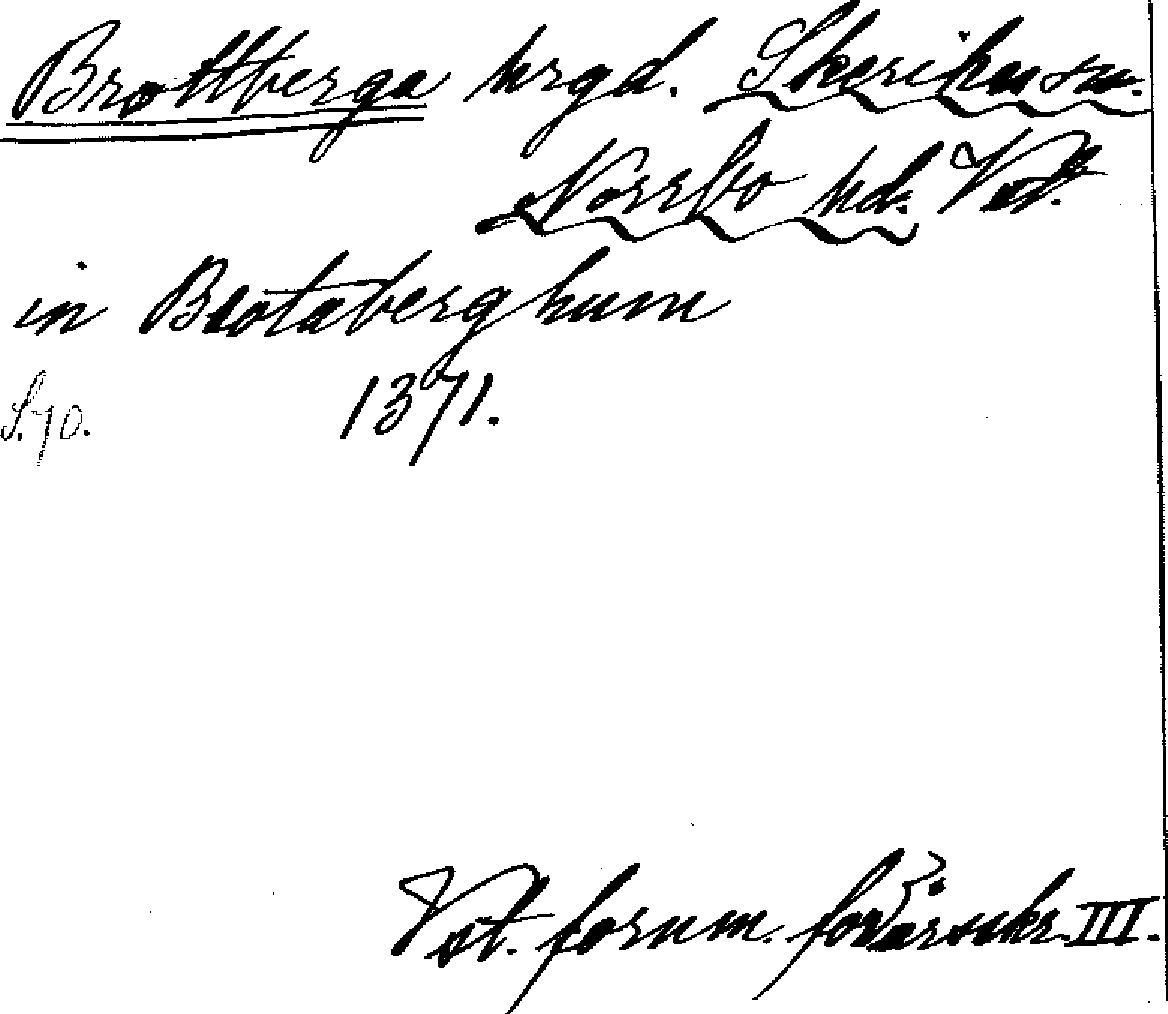 Brottberga hrgd. Skerike sn.
Norrbo hd. Vstl.
in Brotaberghum
S. 70. 1371.
Vst. fornm. för. årsskr. III.